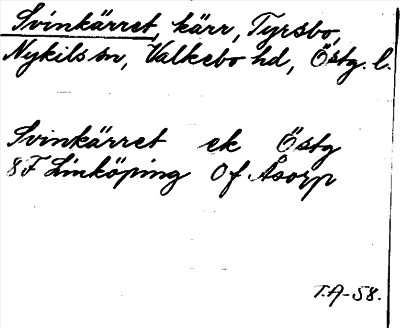 Svinkärret, kärr, Tyrsbo,
Nykils sn, Valkebo hd, Östg. l.
Svinkärret ek Östg
8F Linköping Of Åsorp
T.A-58.